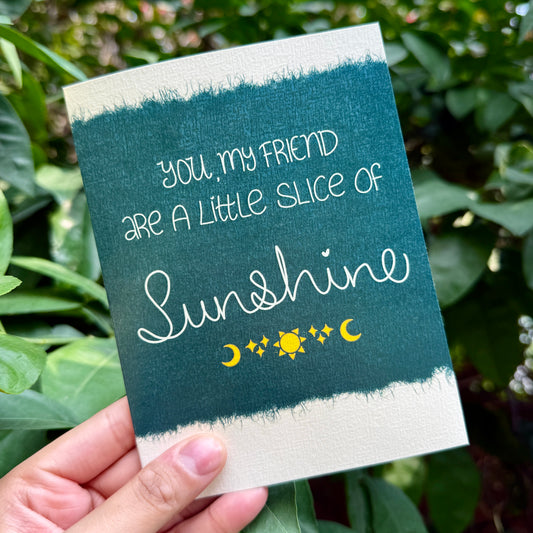 YOU, MY FRIEND
ARE A LITTLE SLICE OF
Sunshine